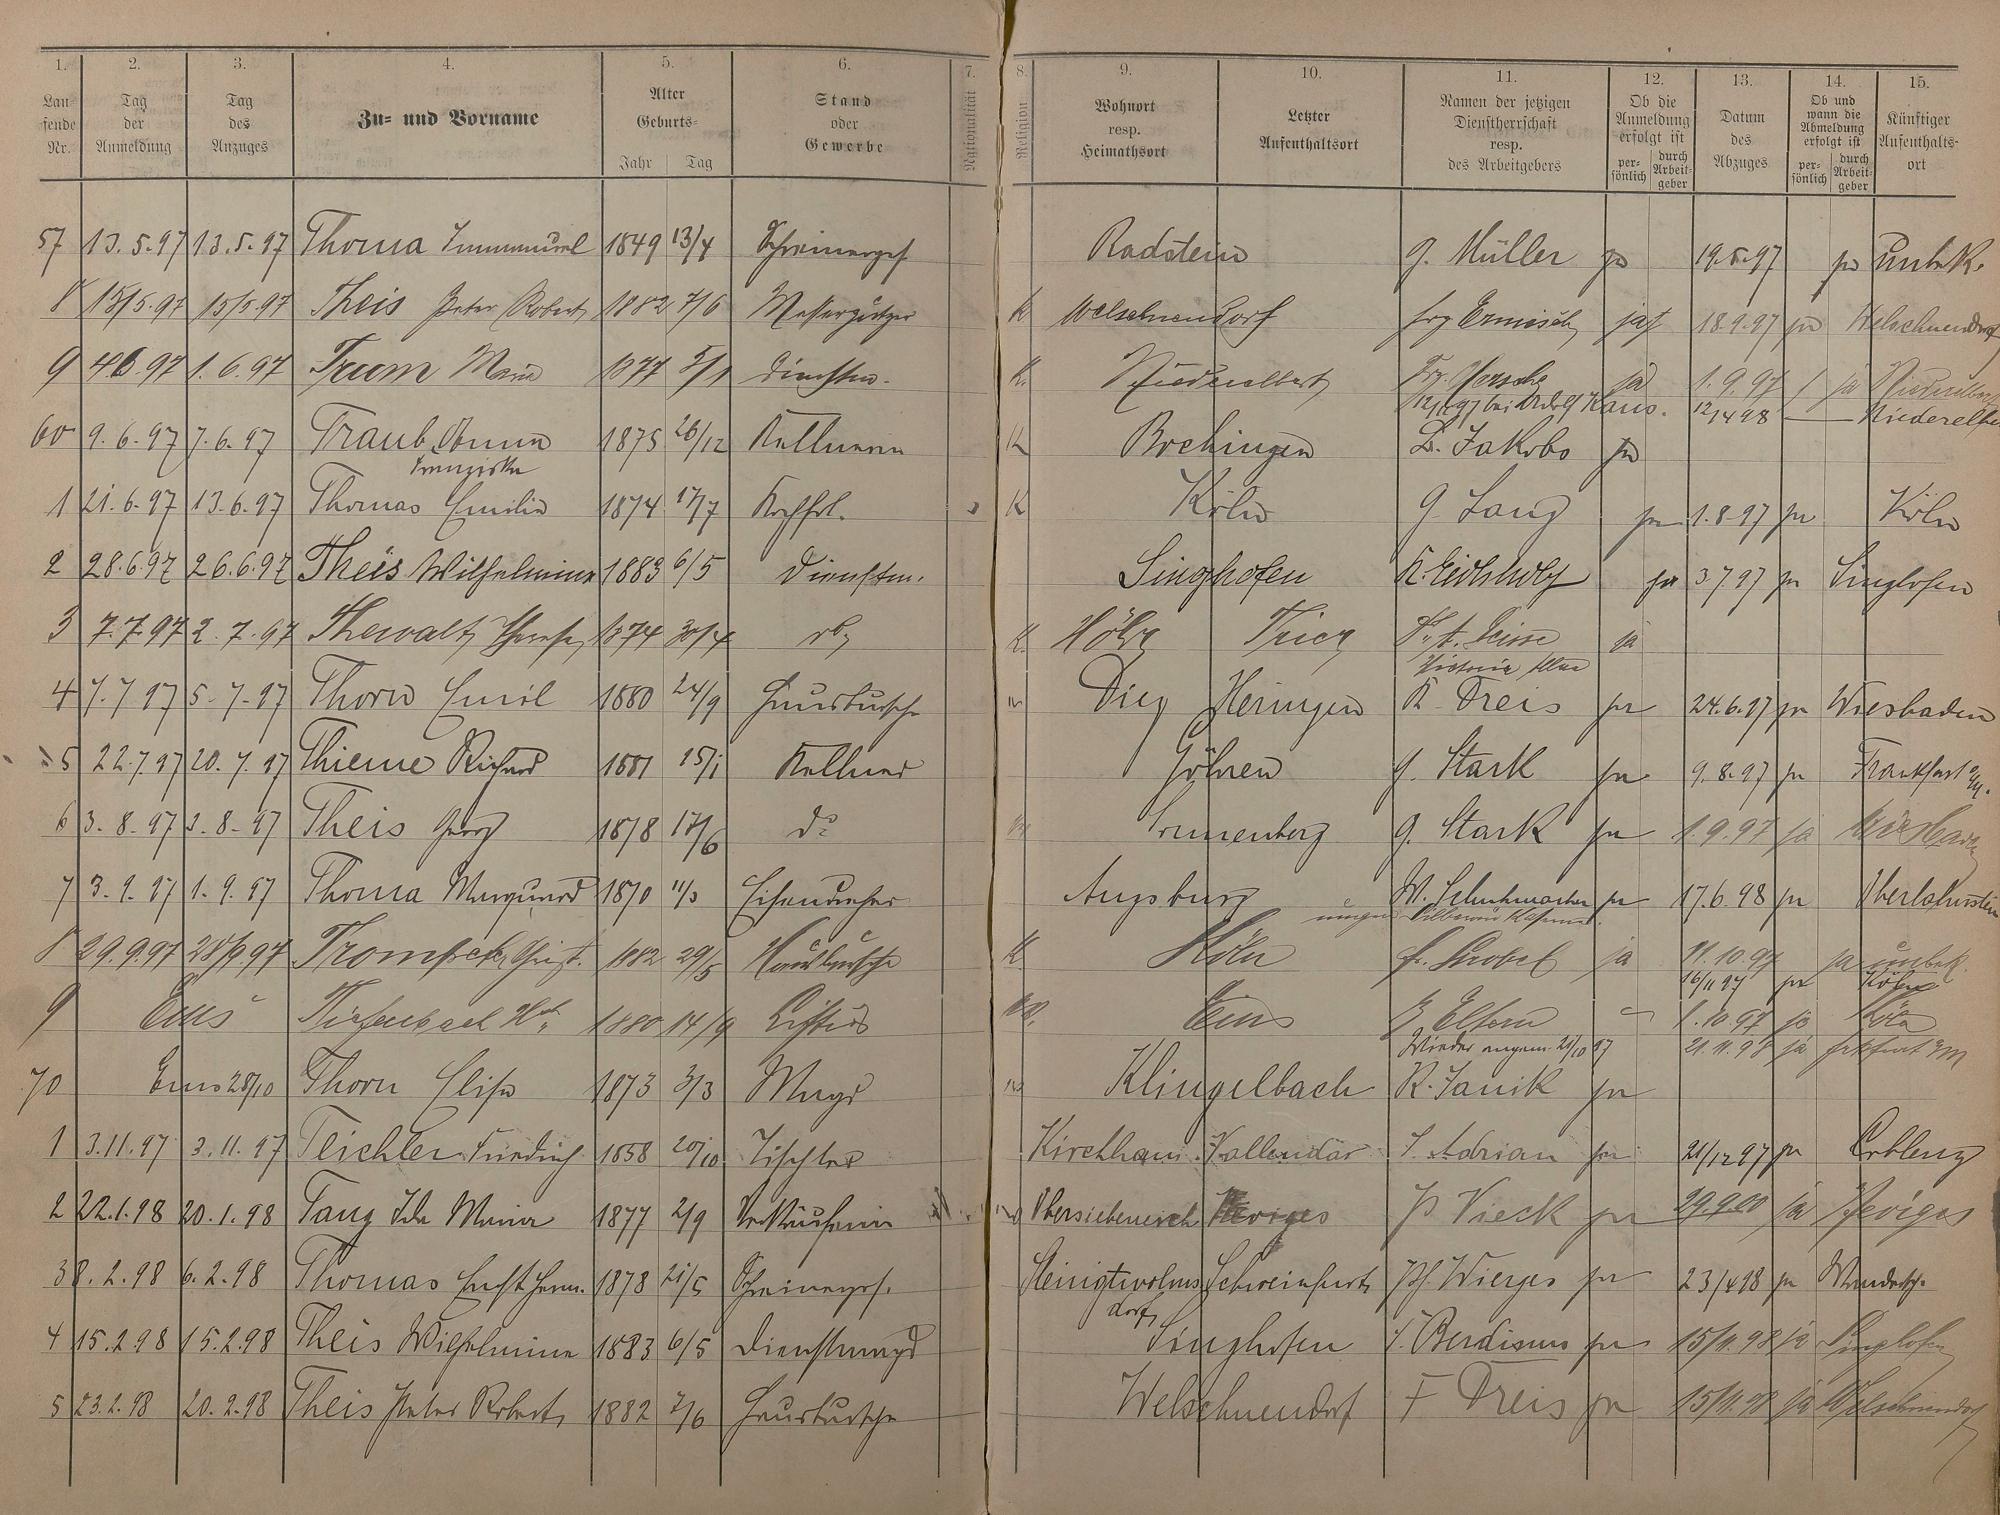 1. 2. 3. 4. 5. 6. 7. 8. 9. 10. 11. 12. 13. 14. 15.
Lau-fende Nr. Tag der Anmeldung Tag des Anzuges Zu- und Vorname Alter Geburts- Jahr Tag Stand oder Gewerbe Nationalität Religion Wohnort resp. Heimathsort Letzter Aufenthaltsort Namen der jetzigen Dienstherrschaft resp. des Arbeitgebers Ob die Anmeldung erfolgt ist per-sönlich durch Arbeit-geber Datum des Abzuges Ob und wann die Abmeldung erfolgt ist per-sönlich durch Arbeit-geber Künftiger Aufenthalts-ort
57 13.5.97 13.5.97 Thoma Immanuel 1849 13/4 Schreinerges Radstein G. Müller ja 19.5.97 ja unbek.
8 15/5.97 15/5.97 Theis Peter Robert 1882 7/6 K Welschneudorf ja 18.9.97 ja Welschneudorf
9 4.6.97 1.6.97 Maria 1877 5/1 Dienstm. K. Niederelbert ja 1.9.97 ja Niederelbert
bei Adolf 12/4 98 Niederelbe
60 9.6.97 7.6.97 Traub Anna 1875 26/12 Kellnerin K Bochingen L. Jakobs ja
Franziska
1 21.6.97 13.6.97 Thomas Emilie 1874 17/7 Kochfrl. K Köln G Lang ja 1.8.97 ja Köln
2 28.6.97 26.6.97 Theis Wilhelmine 1883 6/5 Dienstm. Singhofen ja 3.7.97 ja Singhofen
3 7.7.97 2.7.97 Thewalt 1874 30/4 K. Höhr Trier ja
Victoria
4 7.7.97 5.7.97 Thorn Emil 1880 24/9 Hausbursche Diez Heringen K Treis ja 24.6.97 ja Wiesbaden
5 22.7.97 20.7.97 Thieme Richard 1881 15/1 Kellner Göhren G. Stark ja 9.8.97 ja Frankfurt a/M.
6 3.8.97 3.8.97 Theis Georg 1878 17/6 do Sonnenberg G. Stark ja 1.9.97 ja Wiesbaden
7 3.9.97 1.9.97 Thoma 1870 11/3 Eisendreher Augsburg W. Schuhmacher ja 17.6.98 ja Oberlahnstein
8 29.9.97 28/9 97 Christ. 1882 29/5 Hausbursche K. Köln Strobel ja 11.10.97 ja unbek.
16/11 97 ja Köln
9 Ems Tiefenbach 1880 14/9 Ems Z Eltern 1.10.97 ja Köln
Wieder angem. 21/10 97 21.11.98 ja Frkfurt a/M
70 Ems 28/10 Thorn Elise 1873 3/3 Magd Klingelbach R. Janik ja
1 3.11.97 3.11.97 Teichler Friedrich 1858 20/10 Tischler Kirchhain Vallendar Adrian ja 21/12 97 ja Coblenz
2 22.1.98 20.1.98 Tang Ida Maria 1877 2/9 Verkäuferin Neviges P. Vieck ja 29.9.00 ja Neviges
3 8.2.98 6.2.98 Thomas Ernst Herm. 1878 21/5 Schreinerges. Steinigtwolms Schweinfurt Ph. Wierges ja 23/4 98 ja Wandersch.
dorf
4 15.2.98 15.2.98 Theis Wilhelmine 1883 6/5 Dienstmagd Singhofen ja 15/11.98 ja Singhofen
5 23.2.98 20.2.98 Theis Peter Robert 1882 7/6 Hausbursche Welschneudorf F Treis ja 15/11.98 ja Welschneudorf